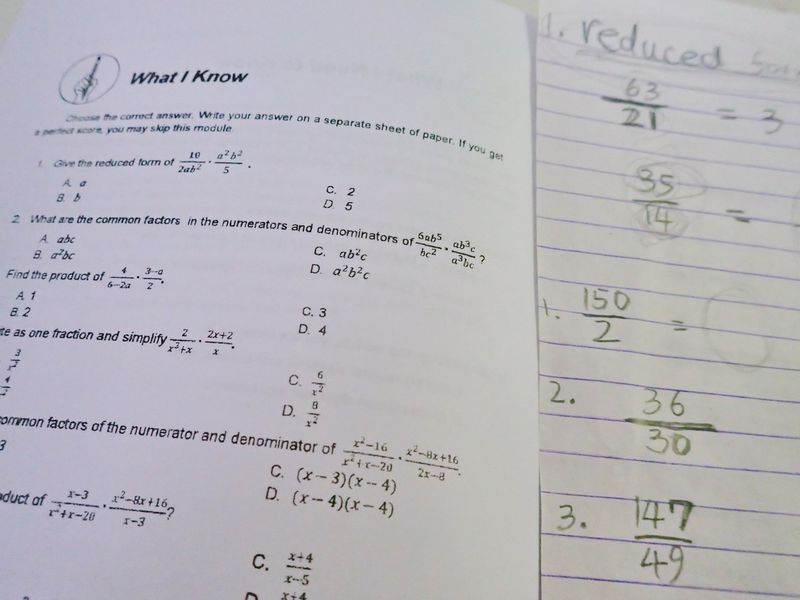 What I Know
Choose the correct answer. Write your answer on a separate sheet of paper. If you get
a perfect score, you may skip this module.
1. Give the reduced form of 10/2ab² · a²b²/5 .
A. a
B. b
C. 2
D. 5
2. What are the common factors in the numerators and denominators of 6ab⁵/bc² · ab³c/a³bc ?
A. abc
B. a²bc
C. ab²c
D. a²b²c
Find the product of 4/6−2a · 3−a/2.
A. 1
B. 2
C. 3
D. 4
te as one fraction and simplify 2/x²+x · 2x+2/x.
3/x²
4/x²
C. 6/x²
D. 8/x²
ommon factors of the numerator and denominator of x²−16/x²+x−20 · x²−8x+16/2x−8.
3
C. (x − 3)(x − 4)
D. (x − 4)(x − 4)
duct of x−3/x²+x−20 · x²−8x+16/x−3?
C. x+4/x−5
D x+4
1. reduced
63/21 = 3
35/14 =
1. 150/2 =
2. 36/30
3. 147/49